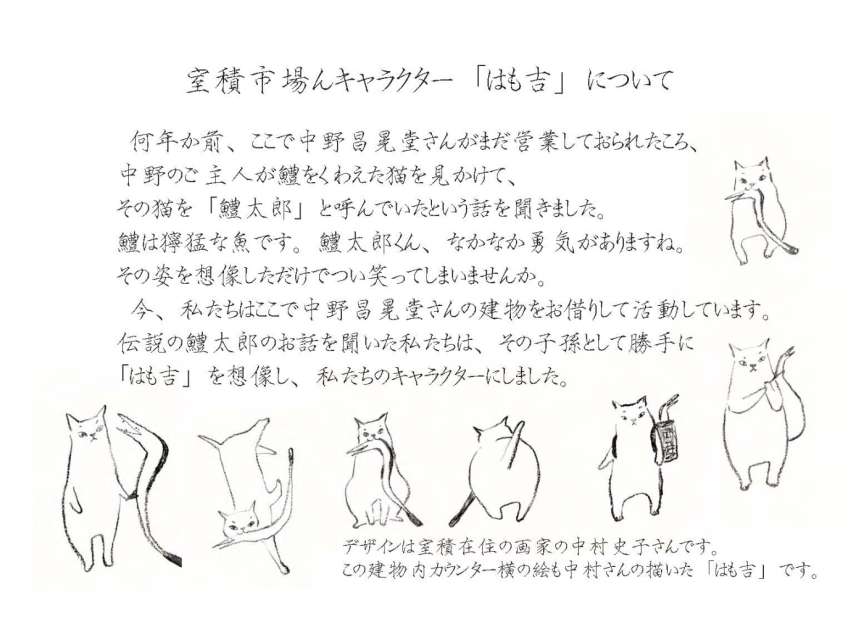 室積市場んキャラクター「はも吉」について
何年か前、ここで中野昌晃堂さんがまだ営業しておられたころ、
中野のご主人が鱧をくわえた猫を見かけて、
その猫を「鱧太郎」と呼んでいたという話を聞きました。
鱧は獰猛な魚です。鱧太郎くん、なかなか勇気がありますね。
その姿を想像しただけでつい笑ってしまいませんか。
今、私たちはここで中野昌晃堂さんの建物をお借りして活動しています。
伝説の鱧太郎のお話を聞いた私たちは、その子孫として勝手に
「はも吉」を想像し、私たちのキャラクターにしました。
デザインは室積在住の画家の中村史子さんです。
この建物内カウンター横の絵も中村さんの描いた「はも吉」です。